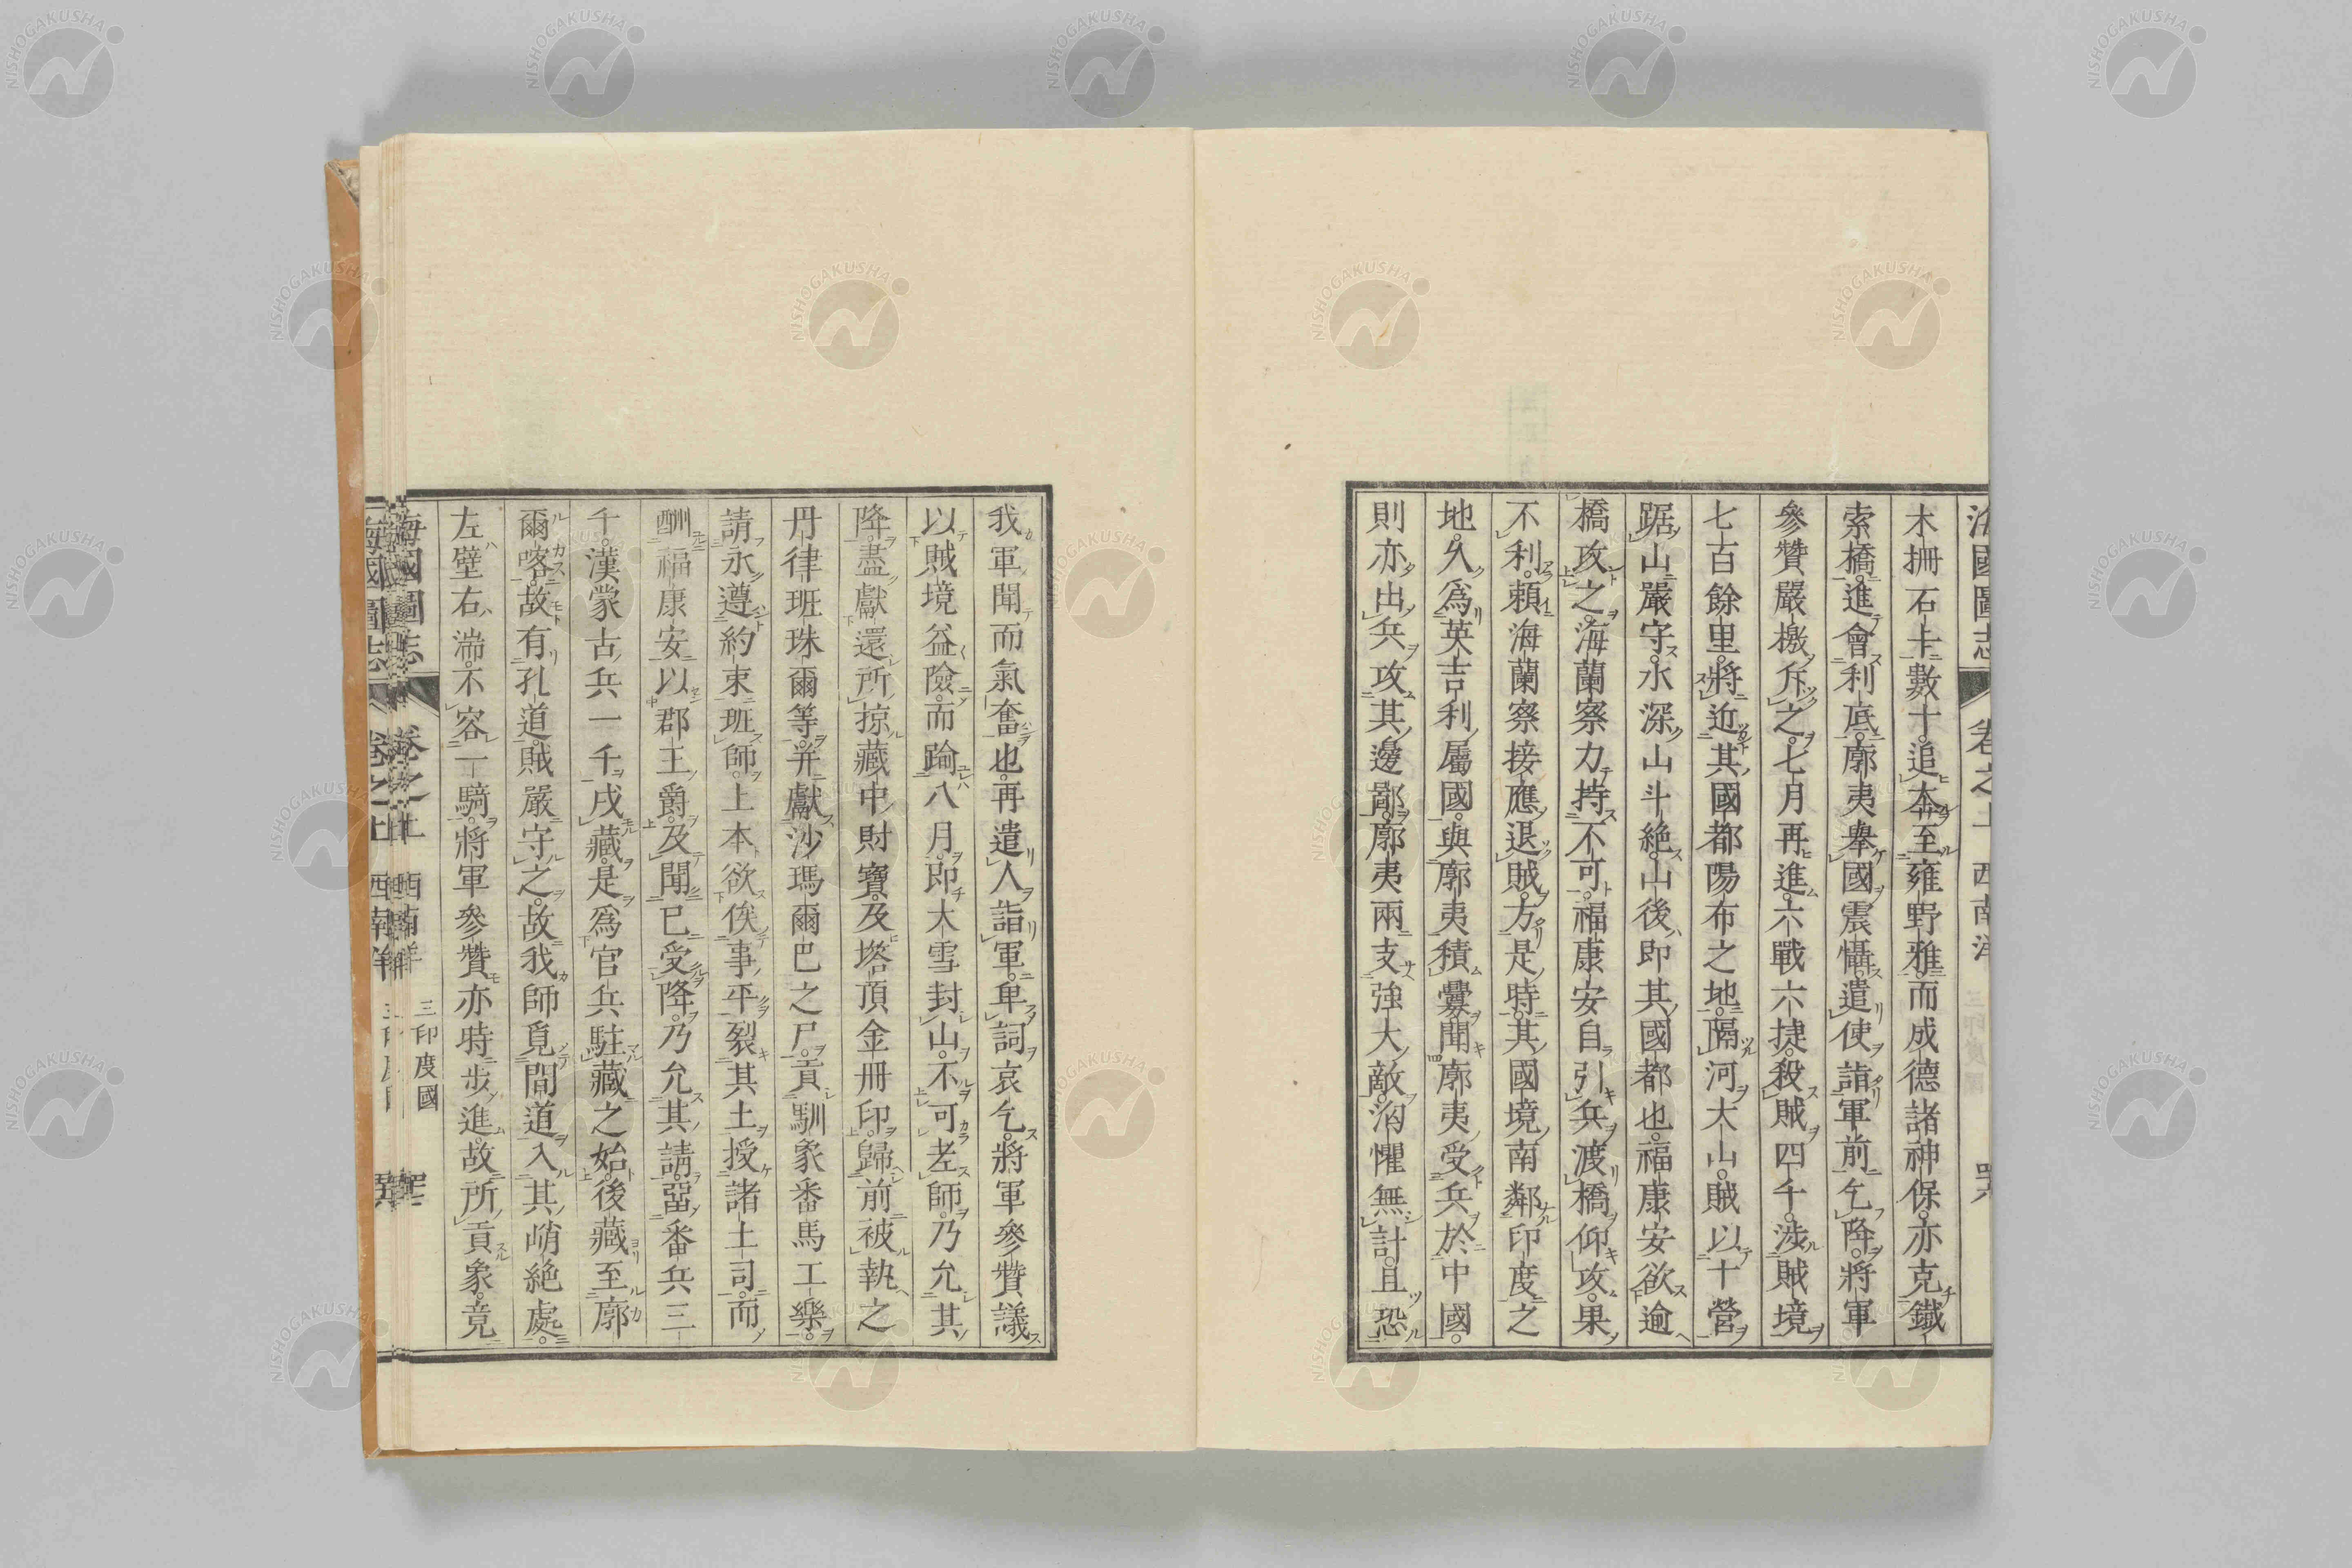 海國圖志 卷之十 西南洋
木柵石卡數十。追奔至雍野雅。而成德諸神保。亦克鐵
索橋。進會利底。廓夷舉國震懾。遣使詣軍前乞降。將軍
參贊嚴檄斥之。七月再進。六戰六捷。殺賊四千。涉賊境
七百餘里。將近其國都陽布之地。隔河大山。賊以十營
踞山嚴守。水深山斗絕。山後即其國都也。福康安欲逾
橋攻之。海蘭察力持不可。福康安自引兵渡橋仰攻。果
不利。賴海蘭察接應退賊。方是時。其國境南鄰印度之
地。久為英吉利屬國。與廓夷積釁。聞廓夷受兵於中國。
則亦出兵攻其邊鄙。廓夷兩支強大敵。洶懼無計。且恐
我軍聞而氣奮也。再遣人詣軍。卑詞哀乞。將軍參贊議
以賊境益險。而踰八月。即大雪封山。不可老師。乃允其
降。盡獻還所掠藏中財寶。及塔頂金冊印。歸前被執之
丹律班珠爾等。并獻沙瑪爾巴之尸。貢馴象番馬工樂。
請永遵約束。班師。上本欲俟事平。裂其土授諸土司。而
酬福康安以郡王爵。及聞已受降。乃允其請。留番兵三
千。漢蒙古兵一千。戍藏。是為官兵駐藏之始。後藏至廓
爾喀。故有孔道。賊嚴守之。故我師覓間道入其峭絕處。
左壁右湍。不容一騎。將軍參贊亦時步進。故所貢象。竟
海國圖志 卷之十 西南洋 三印度國